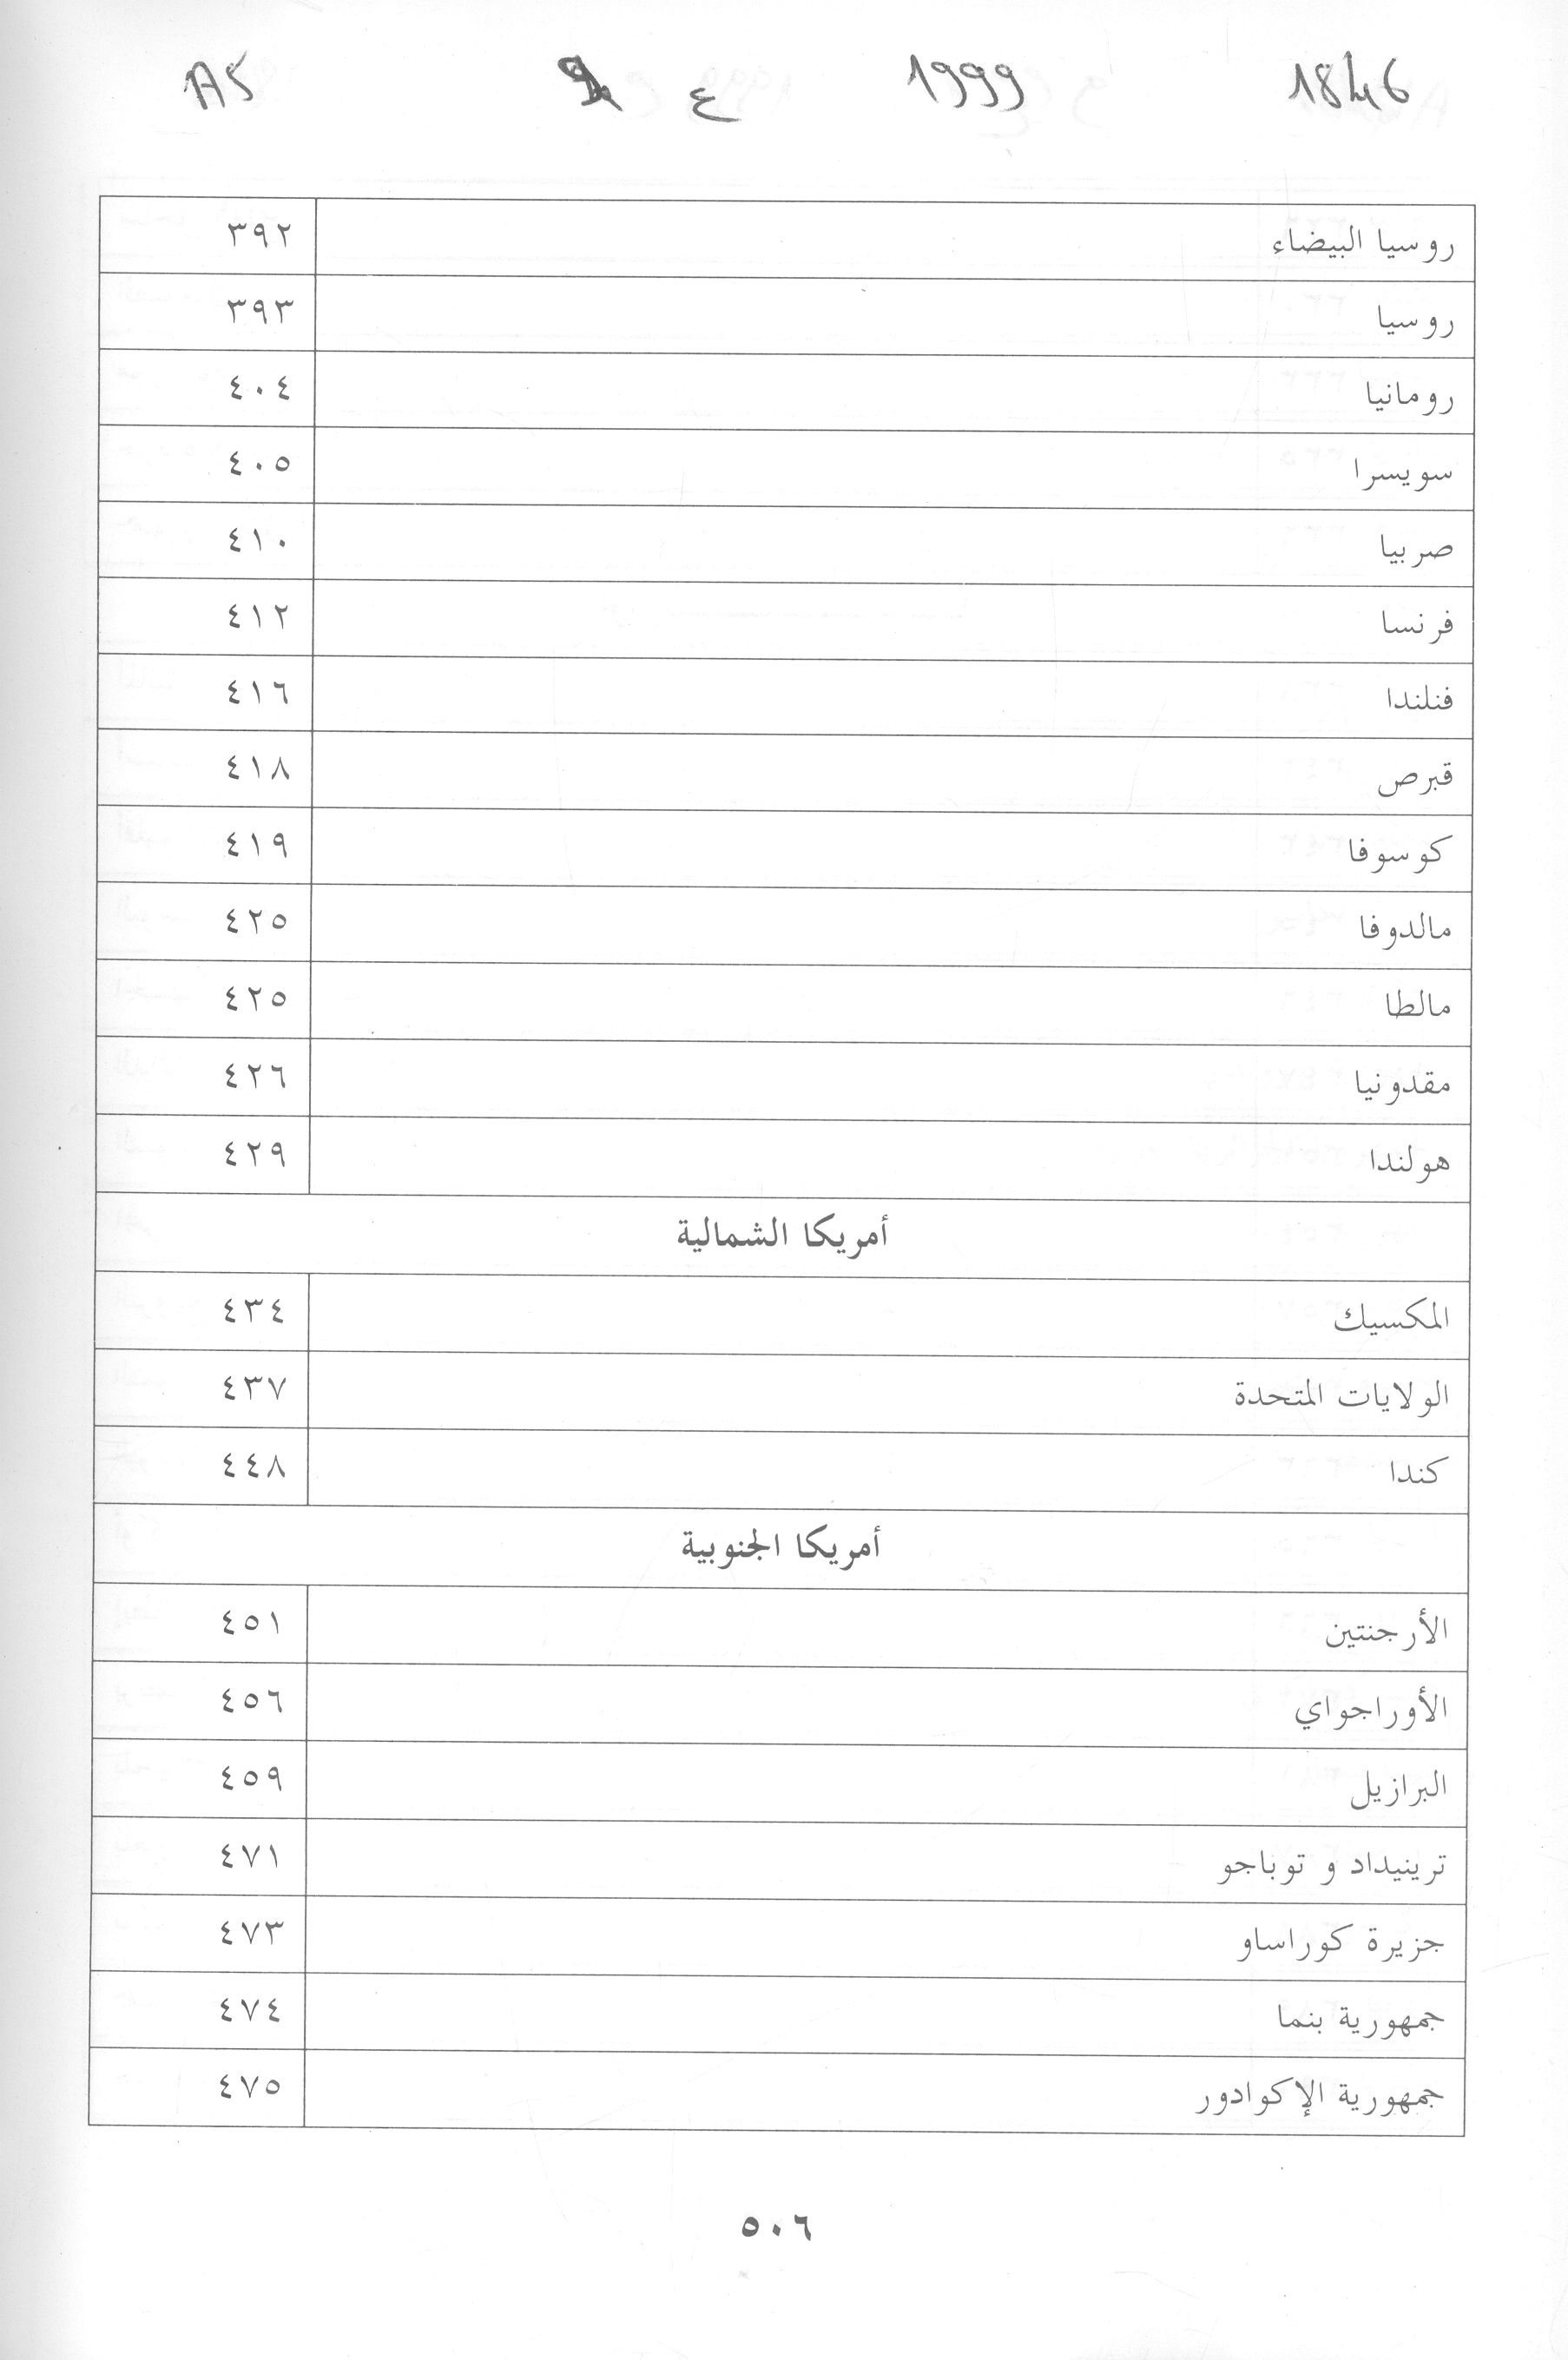 1846 1999 ع A5
روسيا البيضاء ٣٩٢
روسيا ٣٩٣
رومانيا ٤٠٤
سويسرا ٤٠٥
صربيا ٤١٠
فرنسا ٤١٢
فنلندا ٤١٦
قبرص ٤١٨
كوسوفا ٤١٩
مالدوفا ٤٢٥
مالطا ٤٢٥
مقدونيا ٤٢٦
هولندا ٤٢٩
أمريكا الشمالية
المكسيك ٤٣٤
الولايات المتحدة ٤٣٧
كندا ٤٤٨
أمريكا الجنوبية
الأرجنتين ٤٥١
الأوراجواي ٤٥٦
البرازيل ٤٥٩
ترينيداد و توباجو ٤٧١
جزيرة كوراساو ٤٧٣
جمهورية بنما ٤٧٤
جمهورية الإكوادور ٤٧٥
٥٠٦